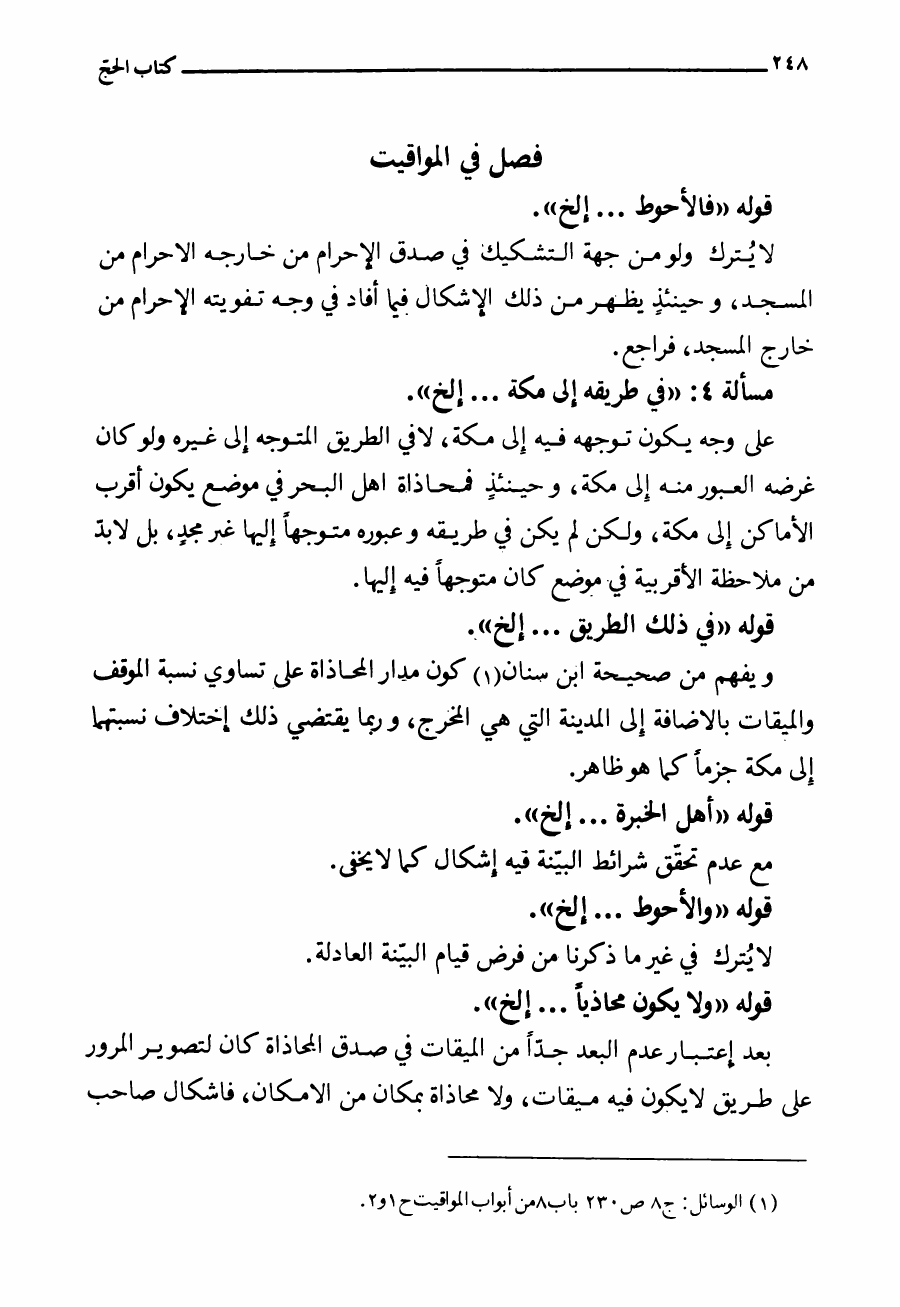 ٢٤٨ كتاب الحجّ
فصل في المواقيت
قوله «فالأحوط ... إلخ».
لا يُترك ولو من جهة التشكيك في صدق الإحرام من خارجه الاحرام من
المسجد، و حينئذٍ يظهر من ذلك الإشكال فيما أفاد في وجه تفويته الإحرام من
خارج المسجد، فراجع.
مسألة ٤: «في طريقه إلى مكة ... إلخ».
على وجه يكون توجهه فيه إلى مكة، لا في الطريق المتوجه إلى غيره ولو كان
غرضه العبور منه إلى مكة، و حينئذٍ فمحاذاة اهل البحر في موضع يكون أقرب
الأماكن إلى مكة، ولكن لم يكن في طريقه و عبوره متوجهاً إليها غير مجدٍ، بل لابدّ
من ملاحظة الأقربية في موضع كان متوجهاً فيه إليها.
قوله «في ذلك الطريق ... إلخ».
و يفهم من صحيحة ابن سنان(١) كون مدار المحاذاة على تساوي نسبة الموقف
والميقات بالاضافة إلى المدينة التي هي المخرج، و ربما يقتضي ذلك إختلاف نسبتهما
إلى مكة جزماً كما هو ظاهر.
قوله «أهل الخبرة ... إلخ».
مع عدم تحقّق شرائط البيّنة فيه إشكال كما لا يخفى.
قوله «والأحوط ... إلخ».
لا يُترك في غير ما ذكرنا من فرض قيام البيّنة العادلة.
قوله «ولا يكون محاذياً ... إلخ».
بعد إعتبار عدم البعد جدّاً من الميقات في صدق المحاذاة كان لتصوير المرور
على طريق لايكون فيه ميقات، ولا محاذاة بمكان من الامكان، فاشكال صاحب
(١) الوسائل: ج٨ ص ٢٣٠ باب٨من أبواب المواقيت ح١و٢.